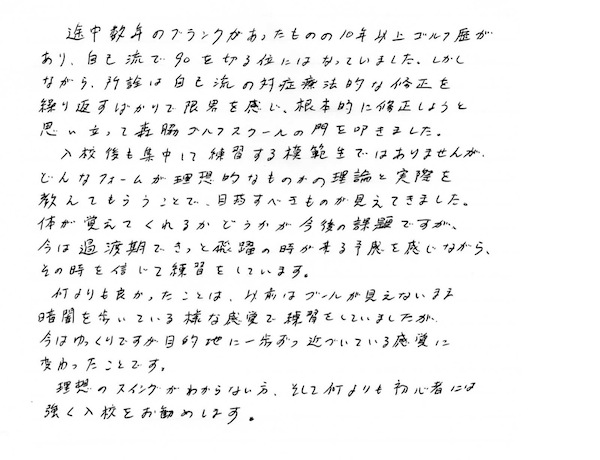 途中数年のブランクがあったものの10年以上ゴルフ歴が
あり、自己流で90を切る位にはなっていました。しかし
ながら、所詮は自己流の対症療法的な修正を
繰り返すばかりで限界を感じ、根本的に修正しようと
思い立って森脇ゴルフスクールの門を叩きました。
入校後も集中して練習する模範生ではありませんが、
どんなフォームが理想的なものかの理論と実際を
教えてもらうことで、目指すべきものが見えてきました。
体が覚えてくれるかどうかが今後の課題ですが、
今は過渡期できっと飛躍の時が来る予感を感じながら、
その時を信じて練習をしています。
何よりも良かったことは、以前はゴールが見えないまま
暗闇を歩いている様な感覚で練習をしていましたが、
今はゆっくりですが目的地に一歩ずつ近づいている感覚に
変わったことです。
理想のスイングがわからない方、そして何よりも初心者には
強く入校をお勧めします。